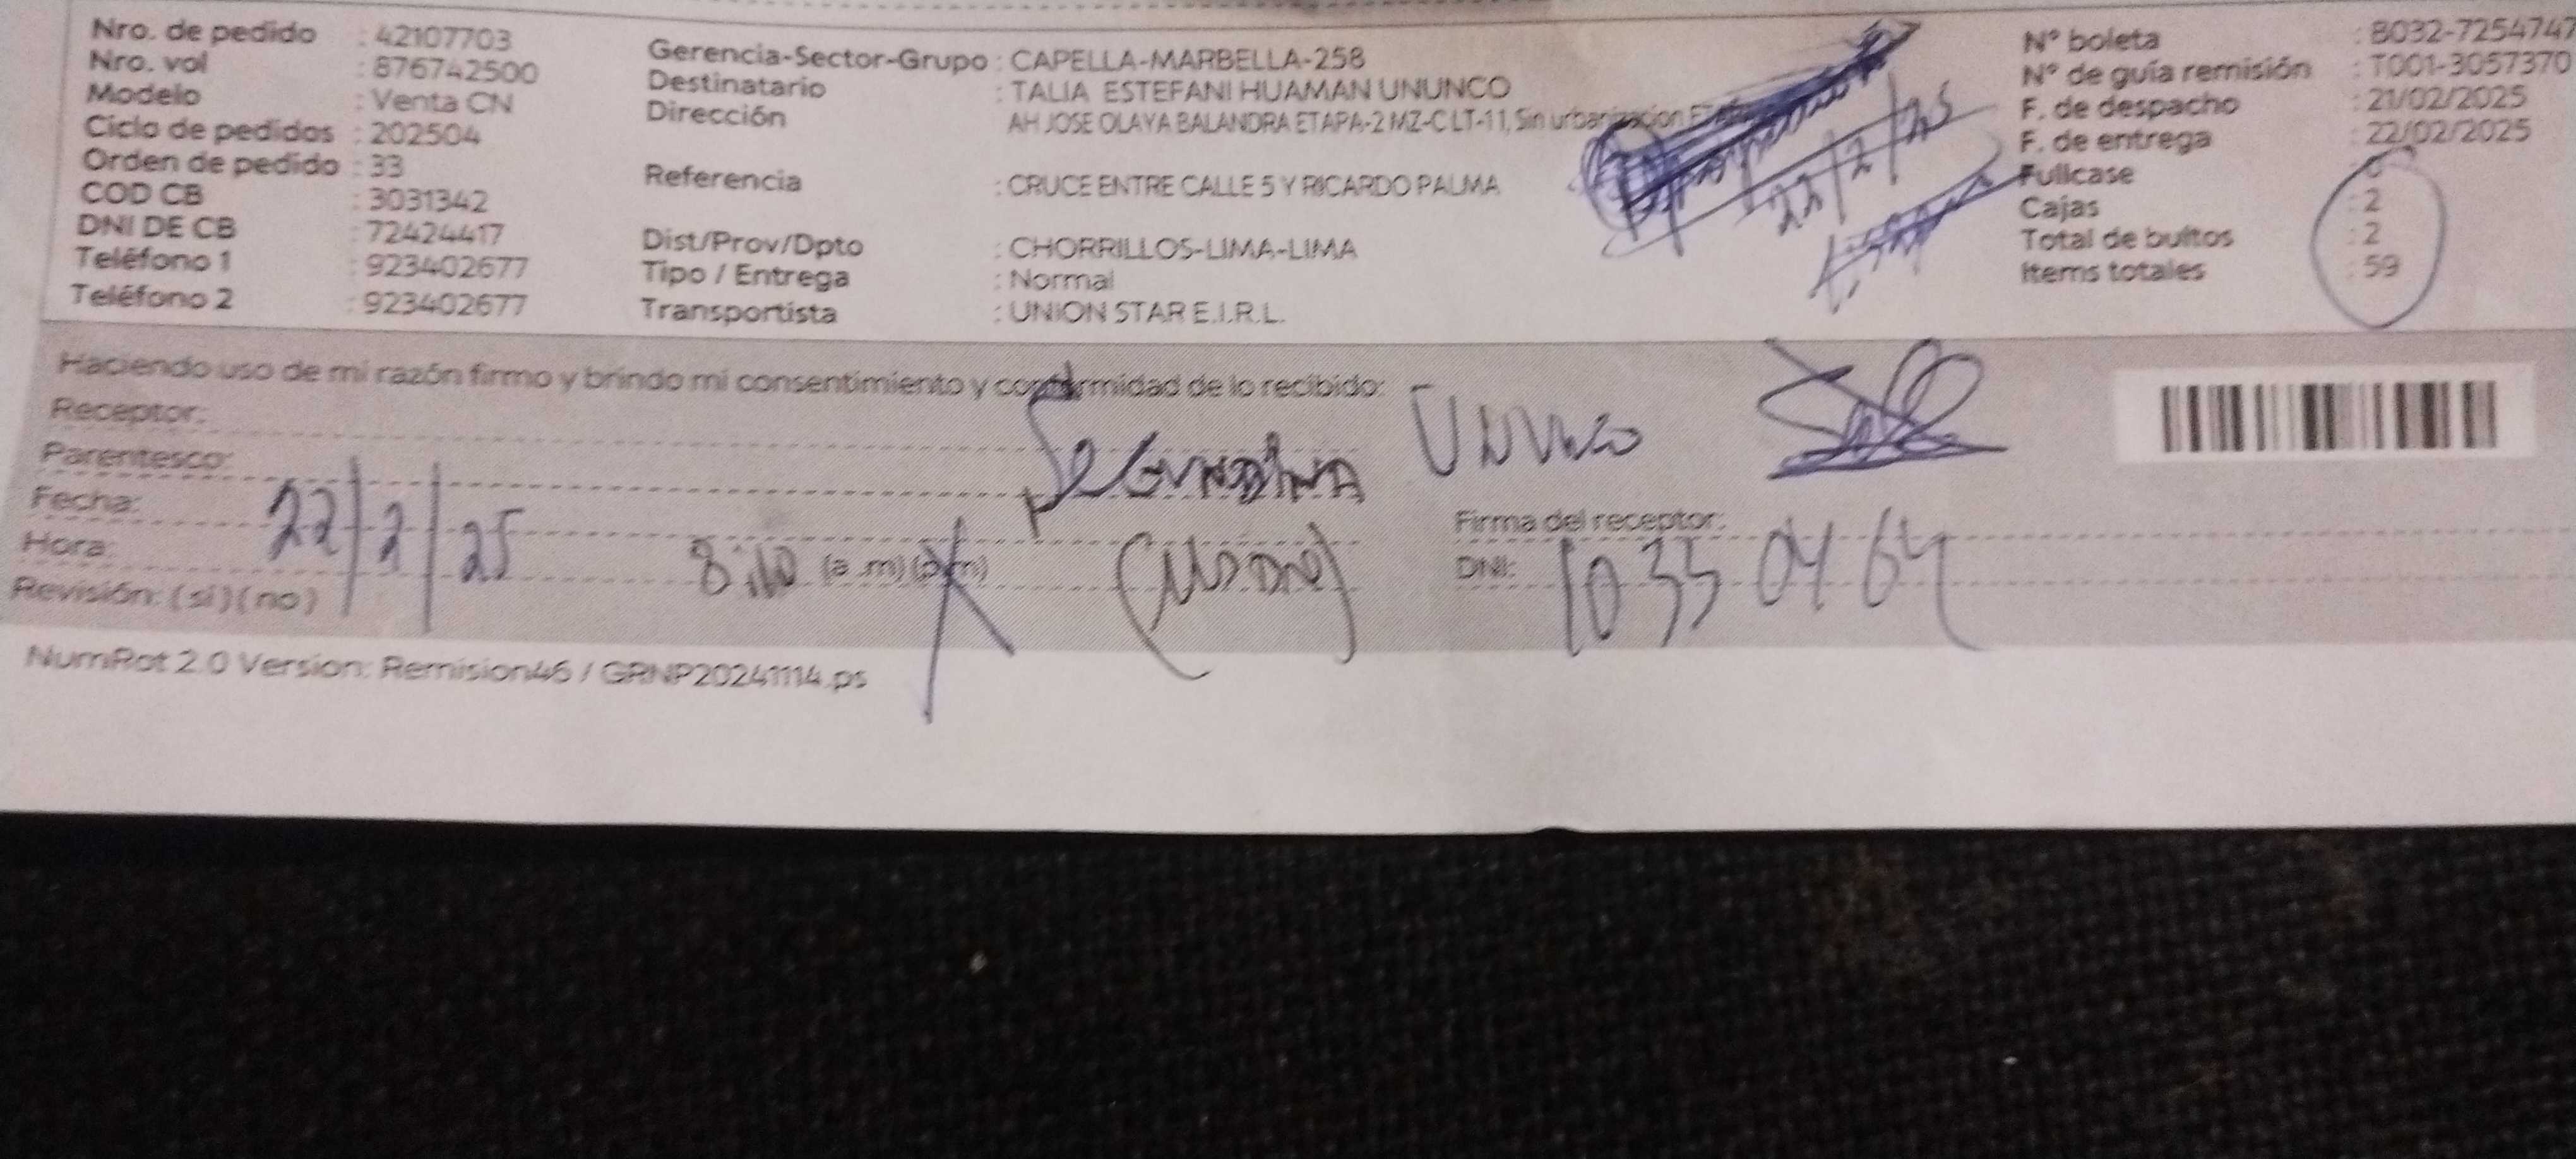 Nro. de pedido : 42107703
Nro. vol : 876742500
Modelo : Venta CN
Ciclo de pedidos : 202504
Orden de pedido : 33
COD CB : 3031342
DNI DE CB : 72424417
Teléfono 1 : 923402677
Teléfono 2 : 923402677
Gerencia-Sector-Grupo : CAPELLA-MARBELLA-258
Destinatario : TALIA ESTEFANI HUAMAN UNUNCO
Dirección : AH JOSE OLAYA BALANDRA ETAPA-2 MZ-C LT-11, Sin urbanizacion
Referencia : CRUCE ENTRE CALLE 5 Y RICARDO PALMA
Dist/Prov/Dpto : CHORRILLOS-LIMA-LIMA
Tipo / Entrega : Normal
Transportista : UNION STAR E.I.R.L.
22/2/25
N° boleta : B032-7254747
N° de guía remisión : T001-3057370
F. de despacho : 21/02/2025
F. de entrega : 22/02/2025
Fullcase : 0
Cajas : 2
Total de bultos : 2
Items totales : 59
Haciendo uso de mi razón firmo y brindo mi consentimiento y conformidad de lo recibido:
Receptor: SEGUNDINA UNUNCO
Parentesco:
Fecha: 22/2/25
Firma del receptor:
Hora: 8:10 (a .m) (p.m)
DNI: 10350464
Revisión: (si) (no)
NumRot 2.0 Version: Remision46 / GRNP20241114.ps